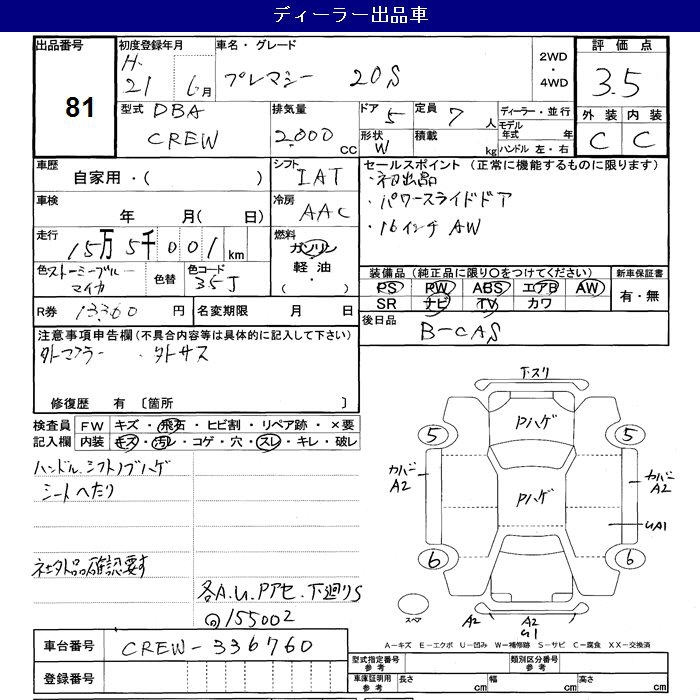 ディーラー出品車
出品番号
81
初度登録年月
H.
21 6月
車名・グレード
プレマシー 20S
2WD
・
4WD
評価点
3.5
型式 DBA
CREW
排気量
2,000 cc
ドア 5
定員 7 人
形状 W
積載 kg
ディーラー・並行
モデル年式 年
ハンドル 左・右
外装 内装
C C
車歴
自家用・( )
シフト
IAT
セールスポイント (正常に機能するものに限ります)
・初出品
・パワースライドドア
・16インチAW
車検
年 月( 日)
冷房
AAC
走行
15万5千001 km
燃料
ガソリン
軽油
・
( )
色 ストーミーブルーマイカ
色替
色コード
35J
装備品 (純正品に限り○をつけてください)
新車保証書
PS PW ABS エアB AW
SR ナビ TV カワ
有・無
R券 13360 円
名変期限 月 日
後日品
B-CAS
注意事項申告欄 (不具合内容等は具体的に記入して下さい)
外マフラー ・外サス
修復歴 有 〔箇所 〕
検査員
記入欄
FW キズ・飛石・ヒビ割・リペア跡・×要
内装 キズ・汚レ・コゲ・穴・スレ・キレ・破レ
ハンドル.シフトノブハゲ
シートへたり
社外品確認要す
各A.U.Pアセ.下廻りS
155002
下スリ
Pハゲ
5 5
カバーA2
Pハゲ
カバーA2
UA1
6 6
スペア
A2 A2
U1
A-キズ E-エクボ U-凹み W-補修跡 S-サビ C-腐食 XX-交換済
車台番号 CREW-336760
登録番号
型式指定番号
参考
類別区分番号
参考
車庫証明用
参考
長さ cm 幅 cm 高さ cm